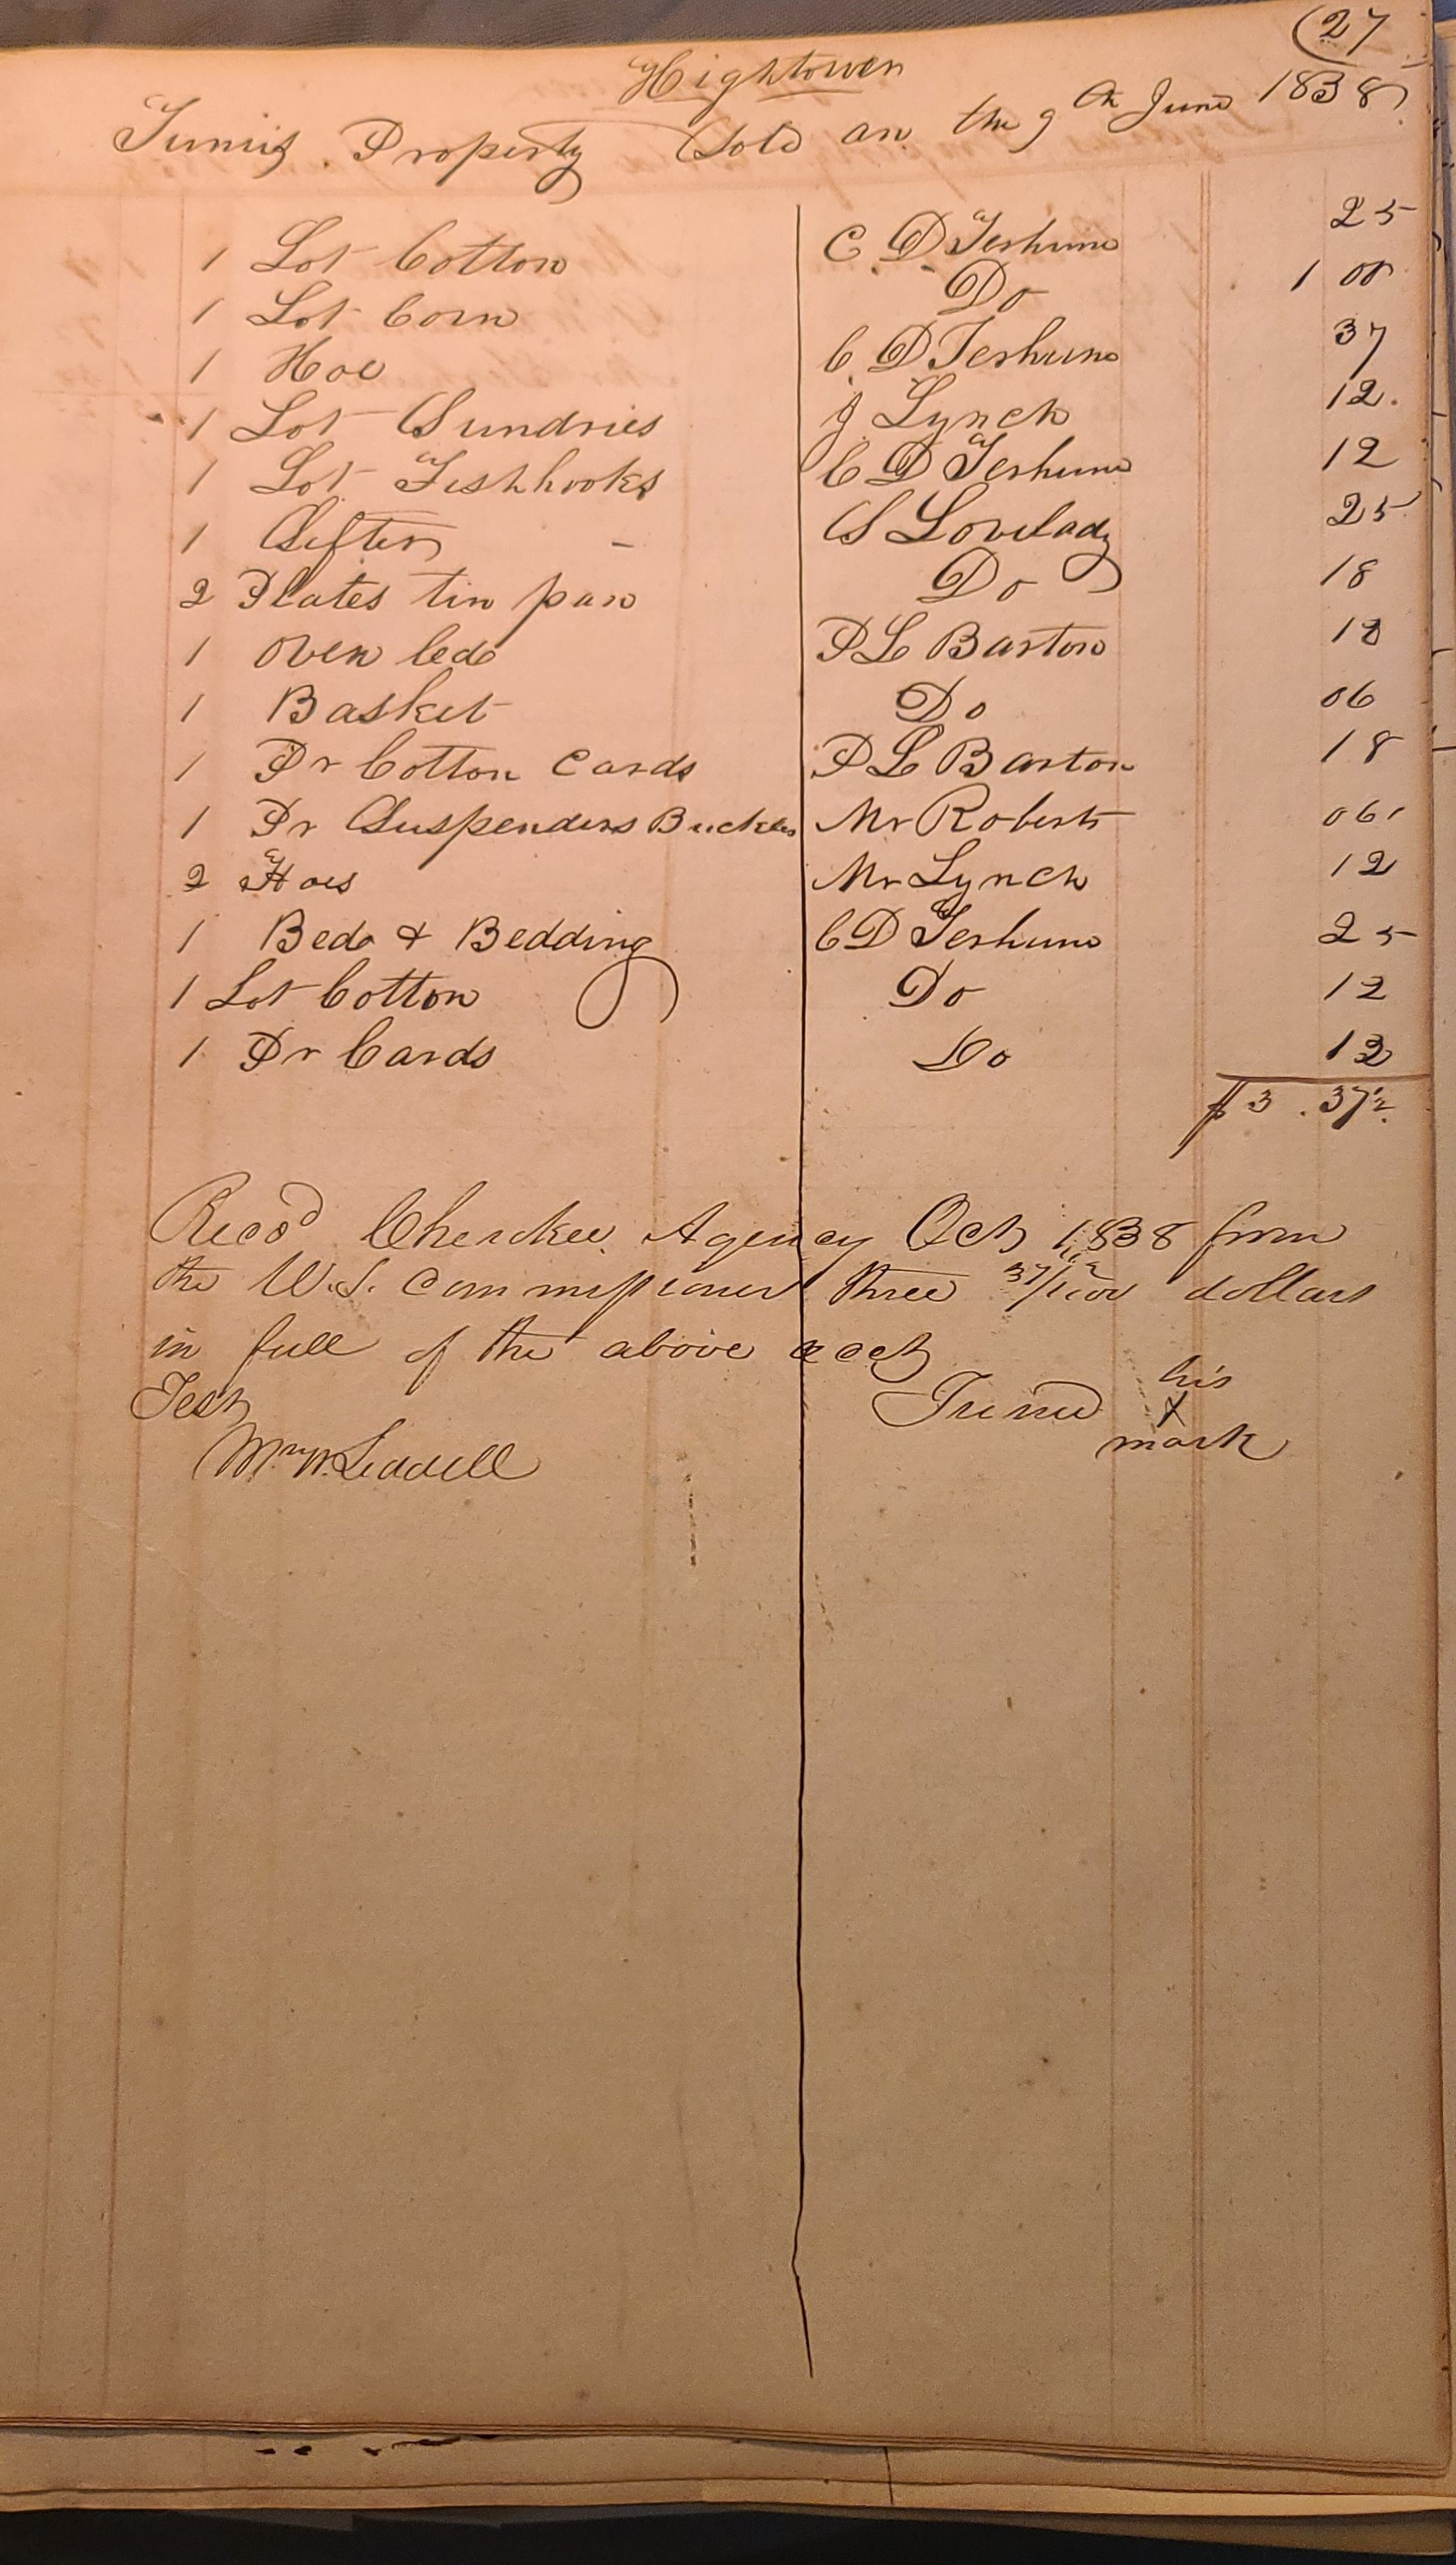 (27
Hightower
Property Sold on the 9th June 1838
1 Lot Cotton C D Terhune 25
1 Lot Corn Do 1 00
1 Hoe C D Terhune 37
1 Lot Sundries J Lynch 12
1 Lot Fishhooks C D Terhune 12
1 Sifter - S Lovelady 25
2 Plates tin pan Do 18
1 Oven led P L Barton 18
1 Basket Do 06
1 Pr Cotton Cards P L Barton 18
1 Pr Suspenders Buckles Mr Roberts 06
2 Hoes Mr Lynch 12
1 Bed & Bedding C D Terhune 25
1 Lot Cotton Do 12
1 Pr Cards Do 12
$3.37½
Recd Cherokee Agency Oct 1838 from
the U.S. Commissioner three 37½/100 dollars
in full of the above acct
Test his
x
Wm W. Liddell mark